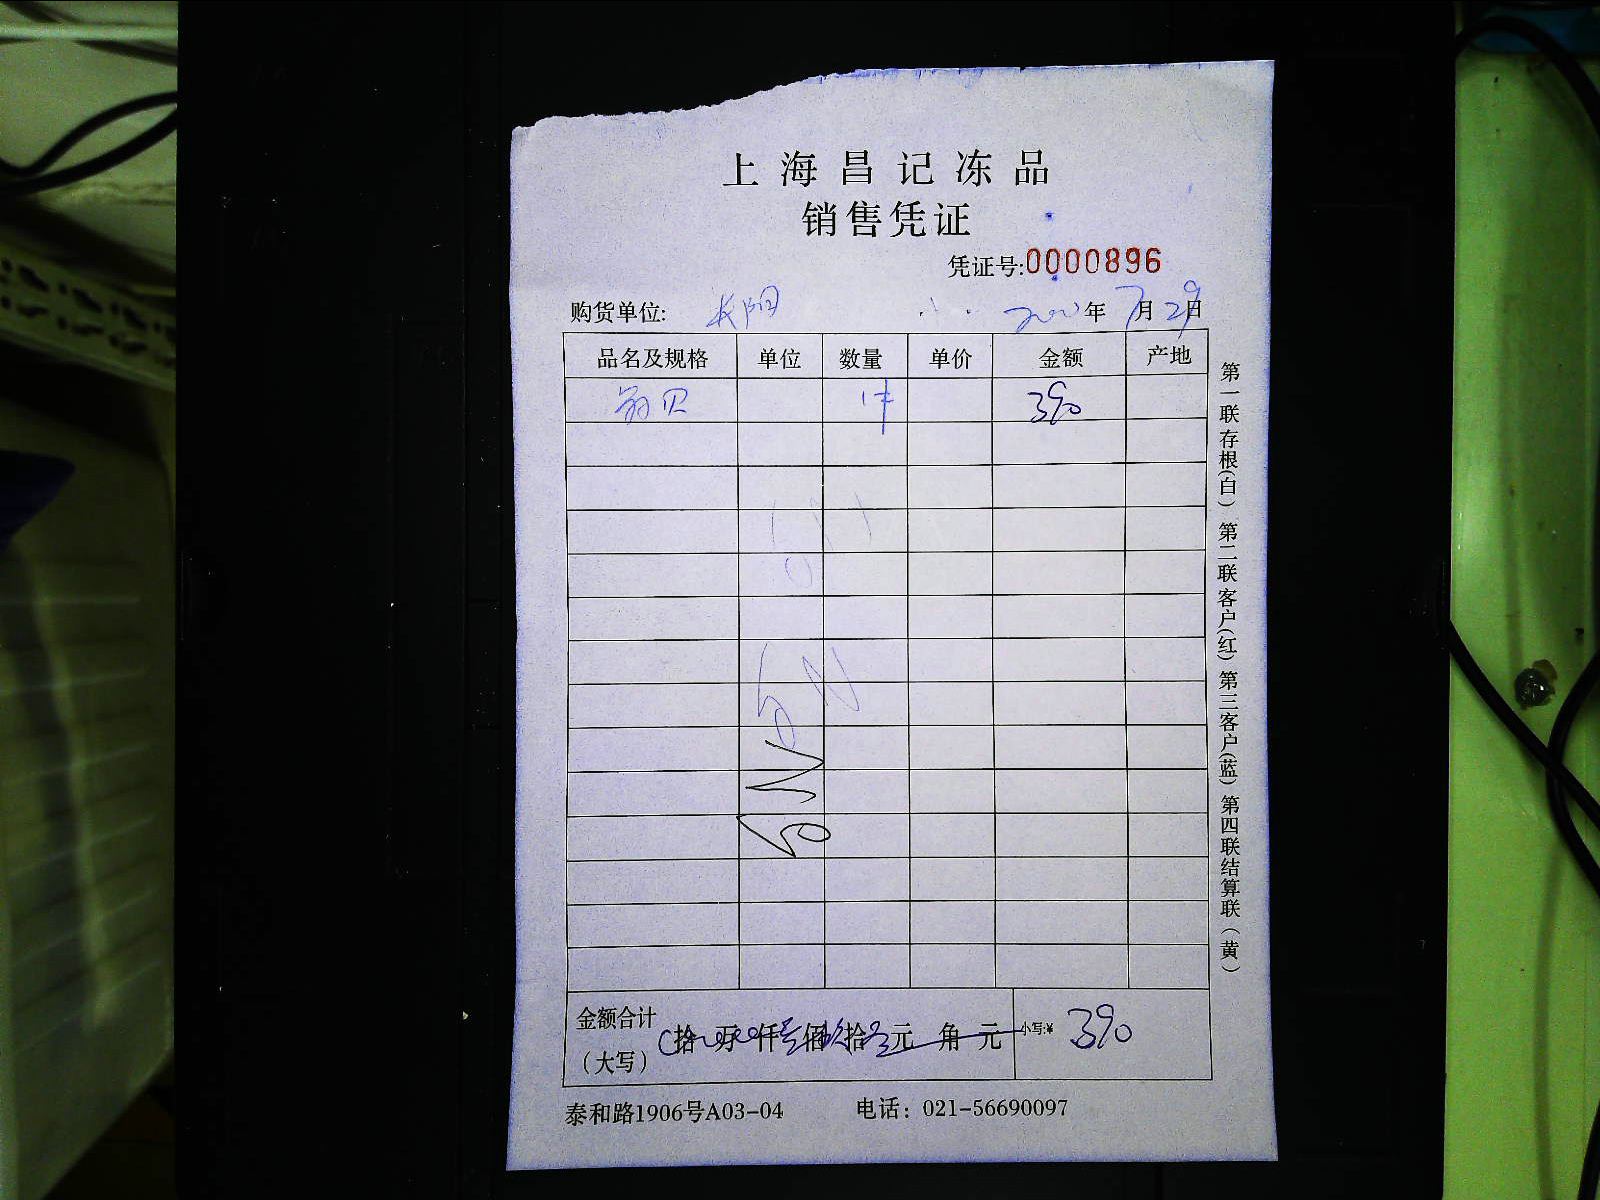 上海昌记冻品
销售凭证
凭证号:0000896
购货单位: 长阳 年7月29日
品名及规格 单位 数量 单价 金额 产地
贝 1件 390
金额合计
(大写) 拾 万 仟 佰 拾 元 角 元 小写:¥ 390
泰和路1906号A03-04 电话：021-56690097
第一联存根(白) 第二联客户(红) 第三客户(蓝) 第四联结算联(黄)